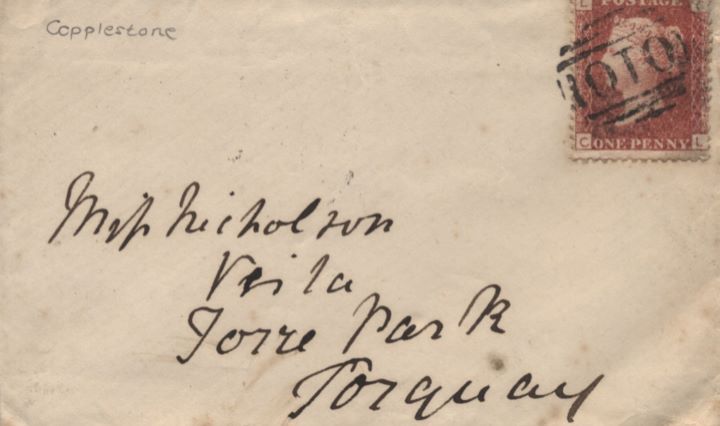 Copplestone
L POSTAGE C
ROTO
C ONE PENNY L
Miss Nicholson
Veila
Torre Park
Torquay